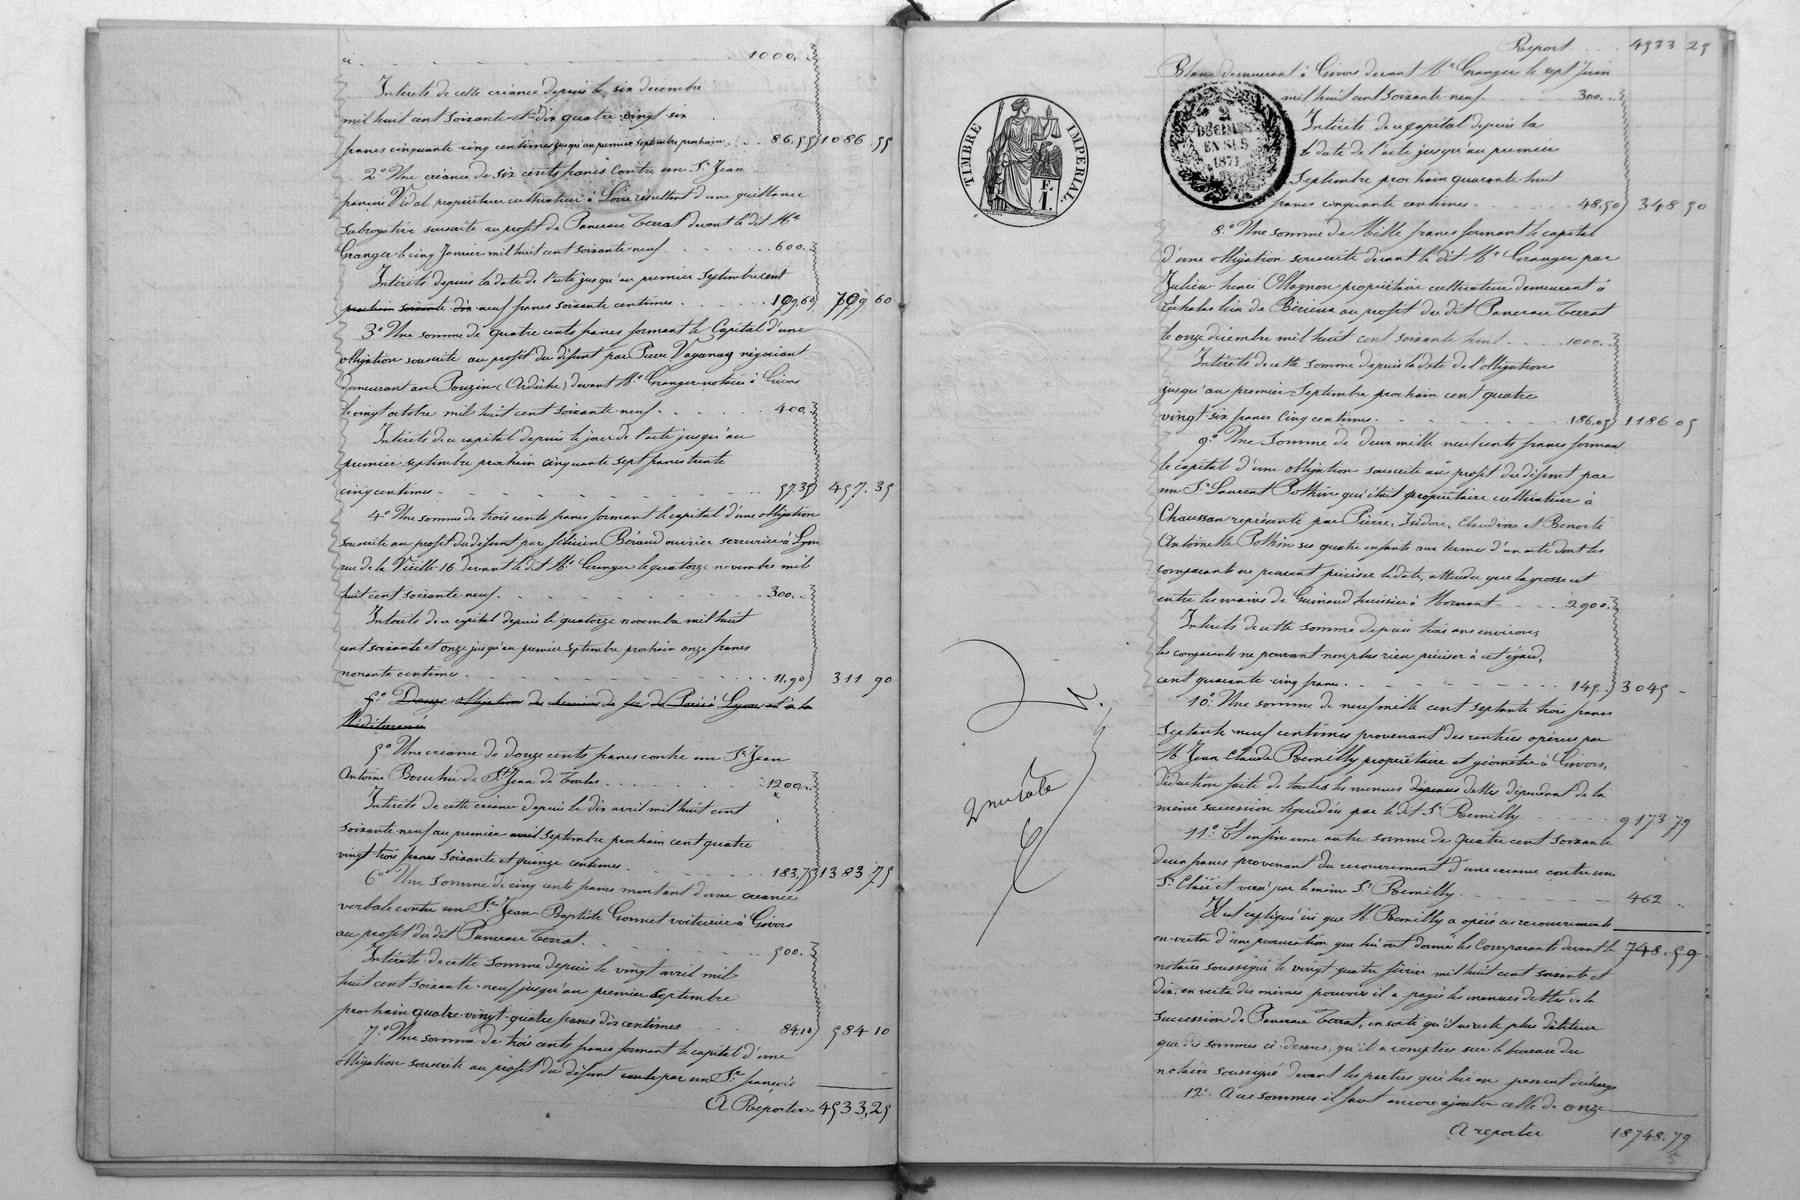 1000.
Intérets de cette créance depuis le six décembre
mil huit cent soixante-et-dix quatre-vingt-six
francs cinquante-cinq centimes jusqu'au premier septembre prochain 86.55 1086.55
2º Une créance de six cents francs contre un Sr. Jean
françois Vidal propriétaire cultivateur à Loire résultant d'une quittance
subrogative souscrite au profit de Pancrace Terrat devant le dit Me
Granger le cinq Janvier mil huit cent soixante-neuf 600.
Intérets depuis la date de l'acte jusqu'au premier septembre cent
prochain soixante-dix-neuf francs soixante centimes 109.60 709 60
3º Une somme de quatre cents francs formant le Capital d'une
obligation souscrite au profit du défunt par Pierre Vaganay négociant
demeurant au Pouzin (Ardèche) devant Me. Granger notaire à Givors
le vingt octobre mil huit cent soixante-neuf. 400.
Intérets de ce capital depuis le jour de l'acte jusqu'au
premier septembre prochain cinquante sept francs trente
cinq centimes. 57.35 457.35
4º Une somme de trois cents francs formant le capital d'une obligation
souscrite au profit du défunt par félicien Béraud ouvrier serrurier à Lyon
rue de la Vieille 16 devant le dit Me. Granger le quatorze novembre mil
huit cent soixante-neuf. 300.
Intérets de ce capital depuis le quatorze novembre mil huit
cent soixante et onze jusqu'au premier septembre prochain onze francs
nonante centimes. 11.90 311 90
obligation de chemin de fer de Paris à Lyon et à la
Méditerranée
5º Une créance de douze cents francs contre un Sr. Jean
Antoine Bouchu de St Jean de Toulas 1200.
Intérets de cette créance depuis le dix avril mil huit cent
soixante-neuf au premier avril septembre prochain cent quatre
vingt trois francs soixante et quinze centimes. 183.75 1383.75
6º Une somme de cinq cents francs montant d'une créance
verbale contre un Sr. Jean-Baptiste Gonnet voiturier à Givors
au profit du dit Pancrace Terrat. 500.
Intérets de cette somme depuis le vingt avril mil
huit cent soixante-neuf jusqu'au premier septembre
prochain quatre-vingt-quatre francs dix centimes 84.10 584 10
7º Une somme de trois cents francs formant le capital d'une
obligation souscrite au profit du défunt par un Sr. françois
A Reporter 4533,25
TIMBRE IMPERIAL.
F.
1.
2 mutata
Report 4533 25
Blanc demeurant à Givors devant Me Granger le sept Juin
2
DÉCIMES
EN SUS
1871
mil huit cent soixante-neuf. 300.
Intérets de ce capital depuis la
date de l'acte jusqu'au premier
Septembre prochain quarante-huit
francs cinquante centimes. 48.50 348 50
8º Une somme de Mille francs formant le capital
d'une obligation souscrite devant le dit Me. Granger par
Julien-henri Ollagnon propriétaire cultivateur demeurant à
au profit du dit Pancrace Terrat
le onze décembre mil huit cent soixante huit 1000.
Intérets de cette somme depuis la date de l'obligation
jusqu'au premier Septembre prochain cent quatre
vingt-six francs cinq centimes. 186.05 1186 05
9º Une somme de deux mille neuf cents francs formant
le capital d'une obligation souscrite au profit du défunt par
un Sr. Laurent Pothin qui était propriétaire cultivateur à
Chaussan représenté par Pierre, Isidore, Claudine et Benoîte
Antoinette Pothin ses quatre enfants aux termes d'un acte dont les
comparants ne peuvent préciser la date, attendu que la grosse est
entre les mains de Guinand huissier à Mornant 2900.
Intérets de cette somme depuis trois ans environ,
les comparants ne pouvant non plus rien préciser à cet égard,
cent quarante-cinq francs. 145. 3045
10º. Une somme de neuf mille cent septante trois francs
septante-neuf centimes provenant des rentrées opérées par
M. Jean Claude Remilly propriétaire et géomètre à Givors,
déduction faite de toutes les menues dépenses dettes dépendant de la
même succession liquidées par le dit Sr. Remilly 9173 79
11º. Et enfin une autre somme de quatre cent soixante
deux francs provenant du recouvrement d'une créance contre un
Sr. Clair et versé par le même Sr. Remilly 462
Il est expliqué ici que M. Remilly a opéré ces recouvrements
en vertu d'une procuration que lui ont donnée les Comparants devant le 748.59
notaire soussigné le vingt quatre février mil huit cent soixante et
dix, en vertu des mêmes pouvoirs il a payé les menues dettes de la
succession de Pancrace Terrat, en sorte qu'il ne reste plus débiteur
que des sommes ci-dessus, qu'il a comptées sur le bureau du
notaire soussigné devant les parties qui lui en passent décharge
12º. A ces sommes il faut encore ajouter celle de onze
A reporter 18748.79